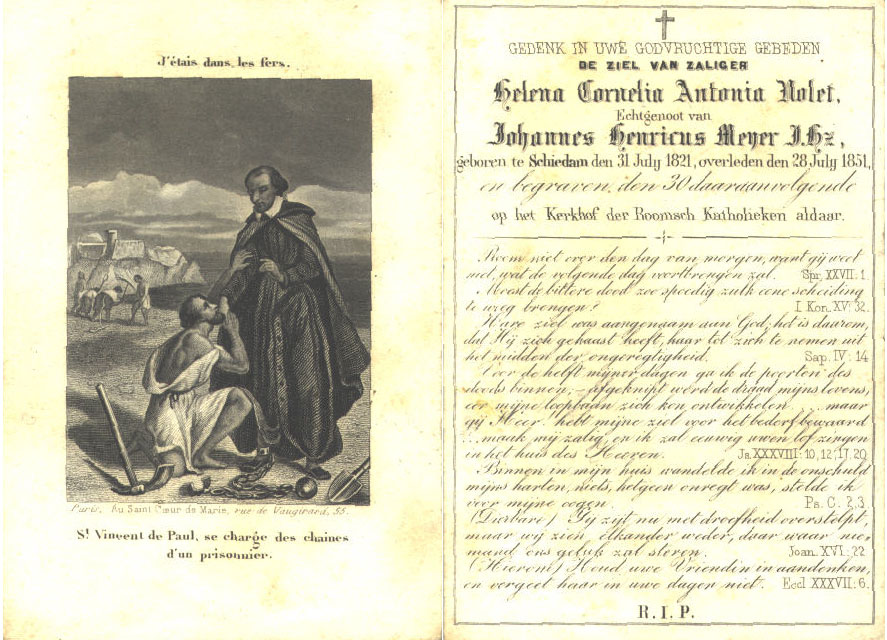 J'étais dans les fers.
Paris, Au Saint Cœur de Marie, rue de Vaugirard, 55.
St Vincent de Paul, se charge des chaines
d'un prisonnier.
GEDENK IN UWE GODVRUCHTIGE GEBEDEN
DE ZIEL VAN ZALIGER
Helena Cornelia Antonia Nolet,
Echtgenoot van
Johannes Henricus Meyer J.Hz,
geboren te Schiedam den 31 July 1821, overleden den 28 July 1851,
en begraven den 30 daaraanvolgende
op het Kerkhof der Roomsch Katholieken aldaar.
Roem niet over den dag van morgen, want gij weet
niet, wat de volgende dag voortbrengen zal. Spr. XXVII: 1.
Moest de bittere dood zoo spoedig zulk eene scheiding
te weeg brengen? I Kon. XV: 32.
Hare ziel was aangenaam aan God; het is daarom,
dat Hij zich gehaast heeft, haar tot zich te nemen uit
het midden der ongeregtigheid. Sap. IV: 14
Voor de helft mijner dagen ga ik de poorten des
doods binnen, – afgeknipt werd de draad mijns levens,
eer mijne loopbaan zich kon ontwikkelen ... maar
gij Heer! hebt mijne ziel voor het bederf bewaard
... maak mij zalig, en ik zal eeuwig uwen lof zingen
in het huis des Heeren. Js. XXXVIII: 10, 12, 17, 20.
Binnen in mijn huis wandelde ik in de onschuld
mijns harten, niets, hetgeen onregt was, stelde ik
voor mijne oogen. Ps. C. 2,3.
(Dierbare) Gij zijt nu met droefheid overstelpt,
maar wij zien elkander weder, daar waar nie-
mand ons geluk zal storen. Joan. XVI: 22.
(Hieron) Houd uwe Vriendin in aandenken,
en vergeet haar in uwe dagen niet. Eccl XXXVII: 6.
R.I.P.